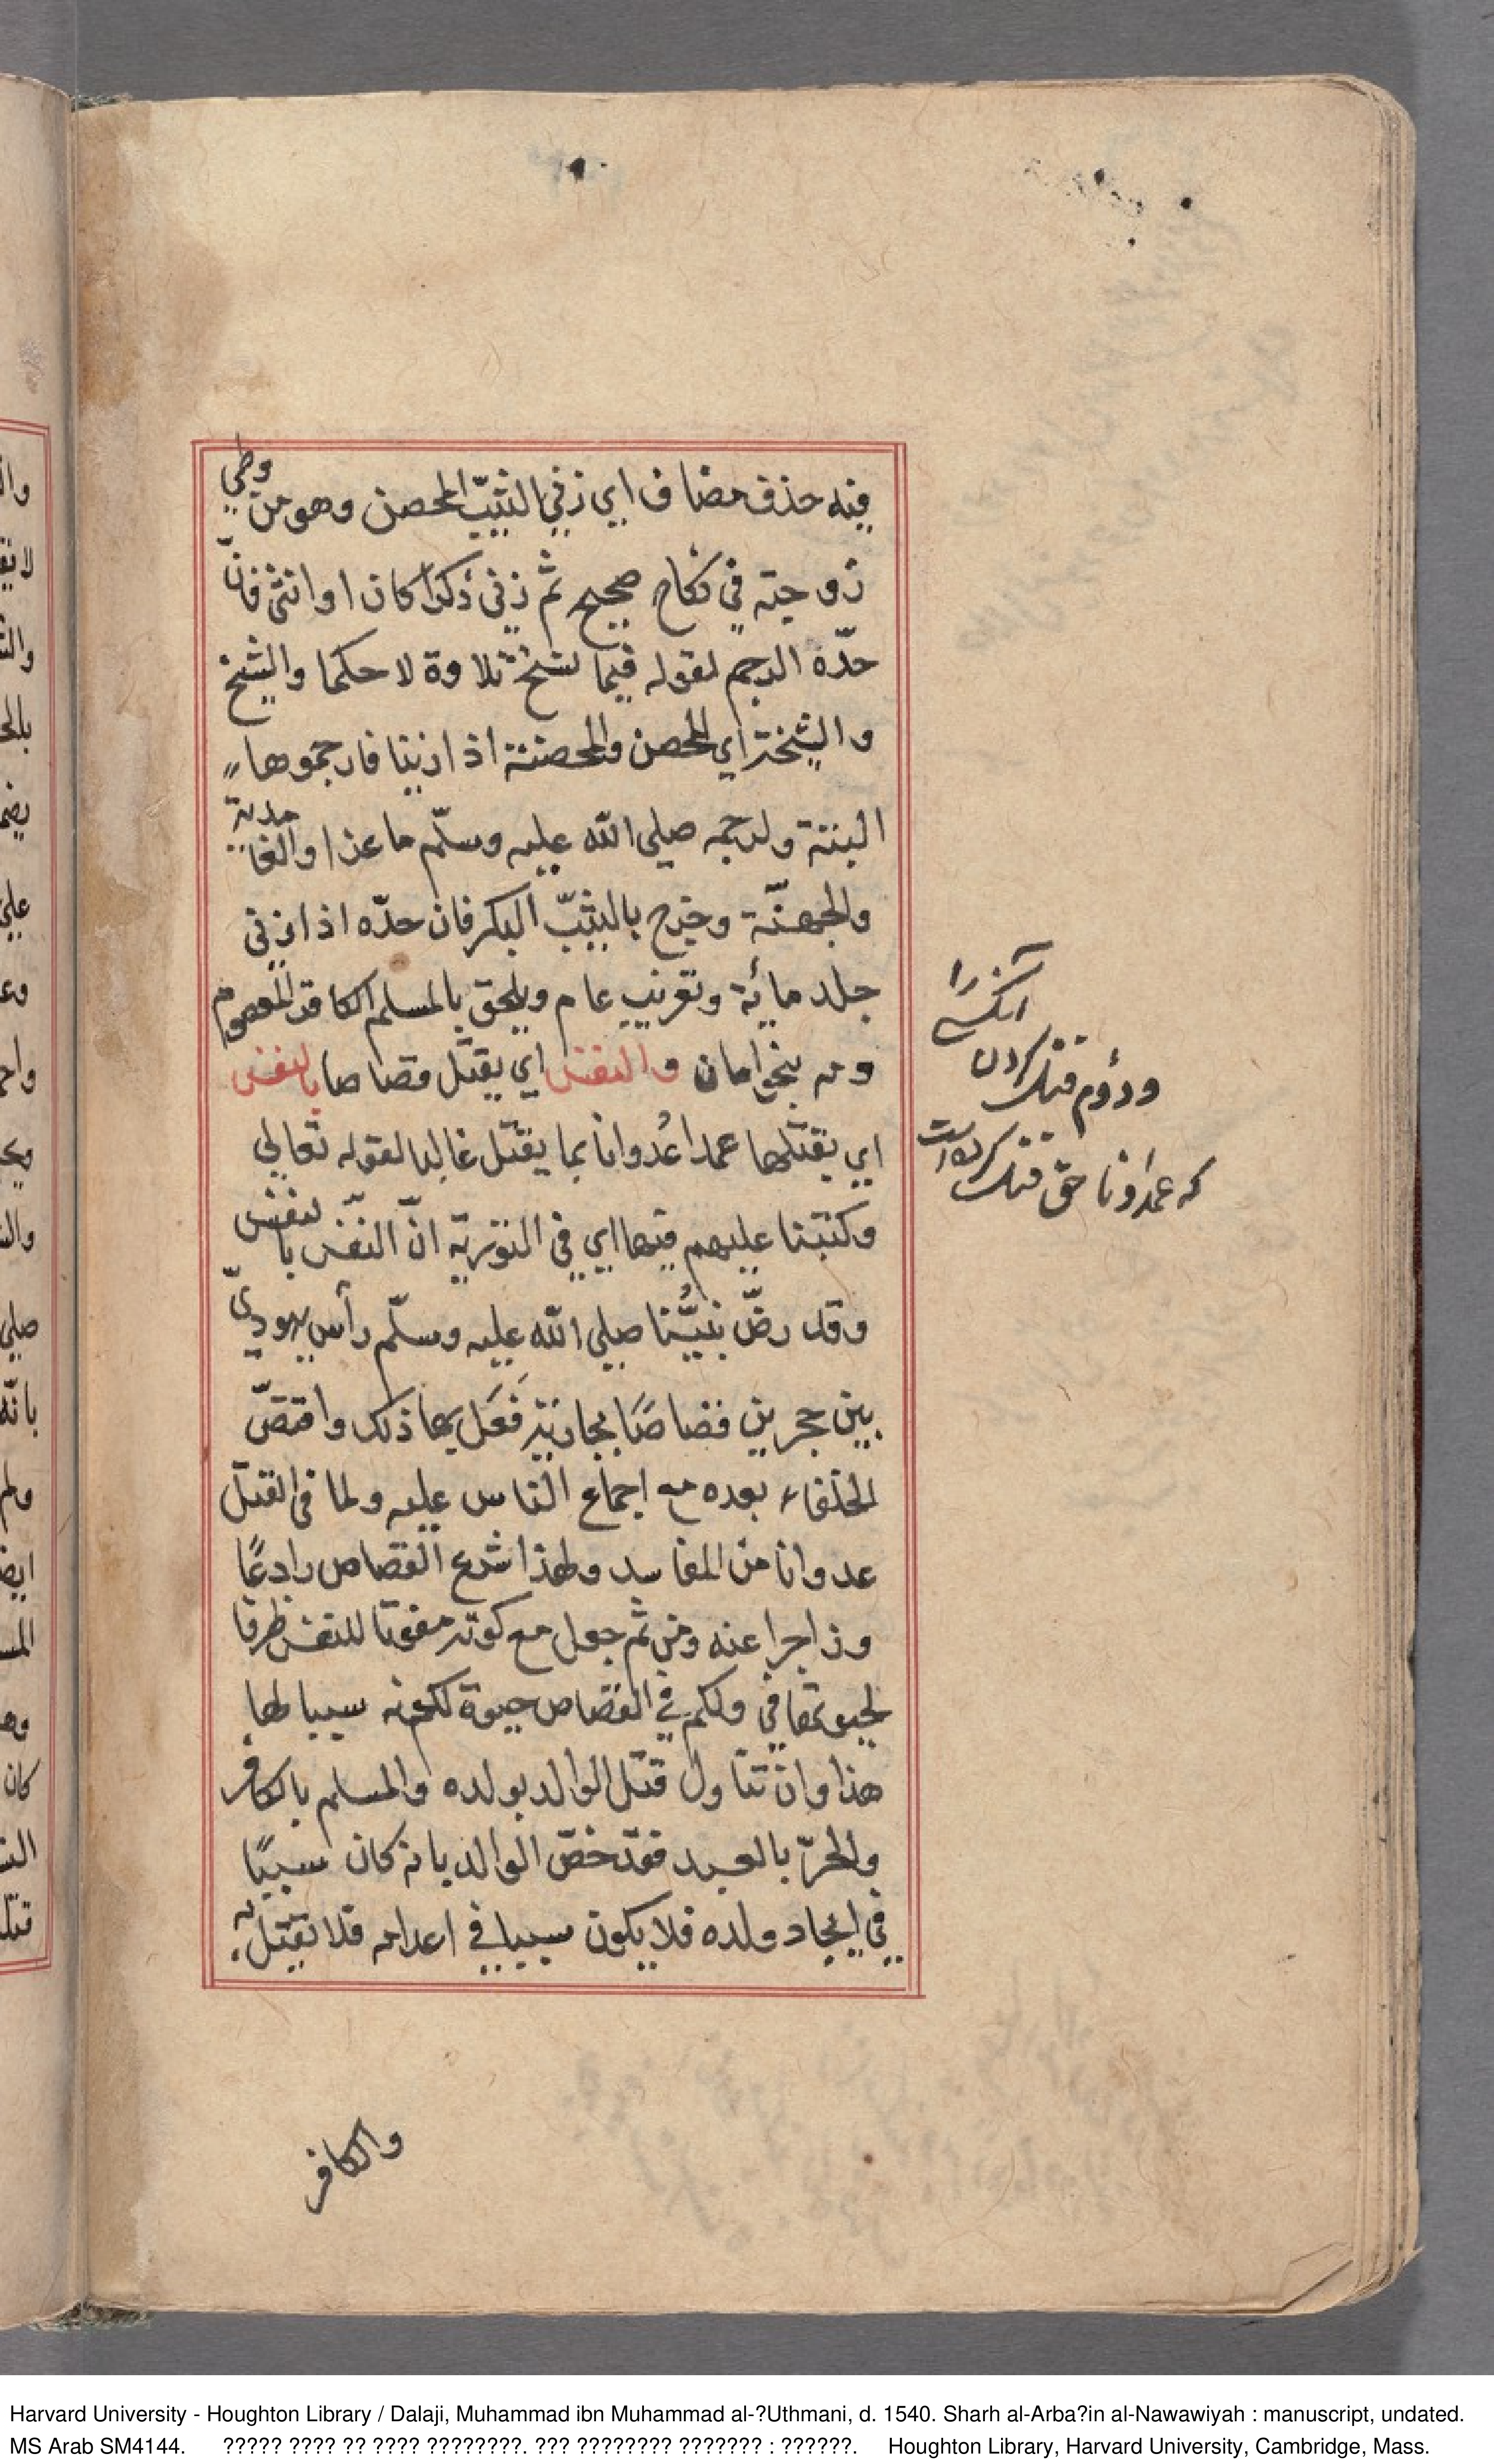 فيه حذف مضاف اي زني الثيّب المحصن وهو من وطي
زوجته في نكاح صحيح ثم زني ذكرًا كان او انثي فانّ
حدّه الرجم لقوله فيما نسخ تلاوة لا حكما والشيخ
والشيخة اي المحصن والمحصنة اذا زينا فارجموها
البتة ولرجمه صلي الله عليه وسلّم ماعزا والغامدية
والجهنّة وخرج بالثيّب البكر فان حدّه اذا زني
جلد مائة وتغريب عام ويلحق بالمسلم الكافر المعصوم
دمه بنحو امان والنفس اي يقتل قصاصا بالنفس
اي يقتلها عمدا عُدوانا بما يقتل غالبا لقوله تعالي
وكتبنا عليهم فيها اي في التورية انّ النّفس بالنفس
وقد رضّ نبيُّنا صلي الله عليه وسلّم رأس يهوديّ
بين حجرين قصاصًا بجارية فَعَل بها ذلك واقتصّ
الخلفاء بعده مع اجماع الناس عليه ولما في القتل
عدوانا من المفاسد ولهذا شرع القصاص رادعًا
وزاجرا عنه ومن ثم جعل مع كونه مفوتا للنفس ظرفا
لحيوتها في ولكم في القصاص حيوة لكونه سببا لها
هذا وان تناول قتل الوالد بولده والمسلم بالكافر
والحرّ بالعبد فقد خصّ الوالد بانه كان سببًا
في ايجاد ولده فلا يكون سببا في اعدامه فلا يقتل به
آنكس را
ودوم قتل كردن
كه عمدا ونا حق قتل كرده است
والكافر
Harvard University - Houghton Library / Dalaji, Muhammad ibn Muhammad al-?Uthmani, d. 1540. Sharh al-Arba?in al-Nawawiyah : manuscript, undated.
MS Arab SM4144. ????? ???? ?? ???? ????????. ??? ???????? ??????? : ??????. Houghton Library, Harvard University, Cambridge, Mass.